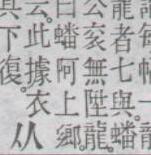 每幅一龍
龍者七與蟠
公袞無陞龍
曰蟠阿上鄉
云此據衣
其下復
从